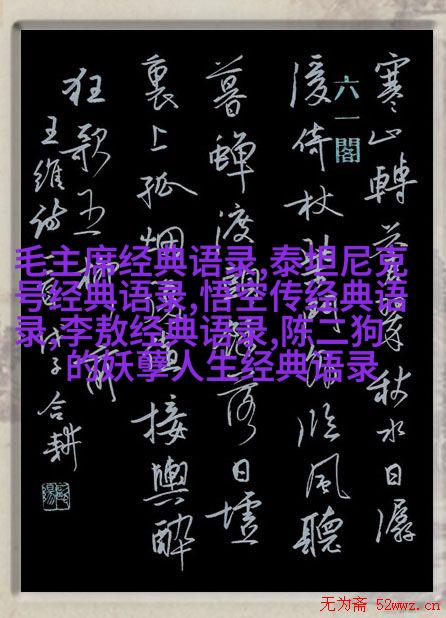 寒山轉蒼翠秋水日潺
六一閣
湲倚杖柴門外臨風聽
暮蟬渡頭餘落日墟
裏上孤烟復值接輿醉
狂歌五柳前
王維詩一首戊子合耕
毛主席经典语录,泰坦尼克
号经典语录,悟空传经典语
录,李敖经典语录,陈二狗
的妖孽人生经典语录
无为斋 52wwz.cn